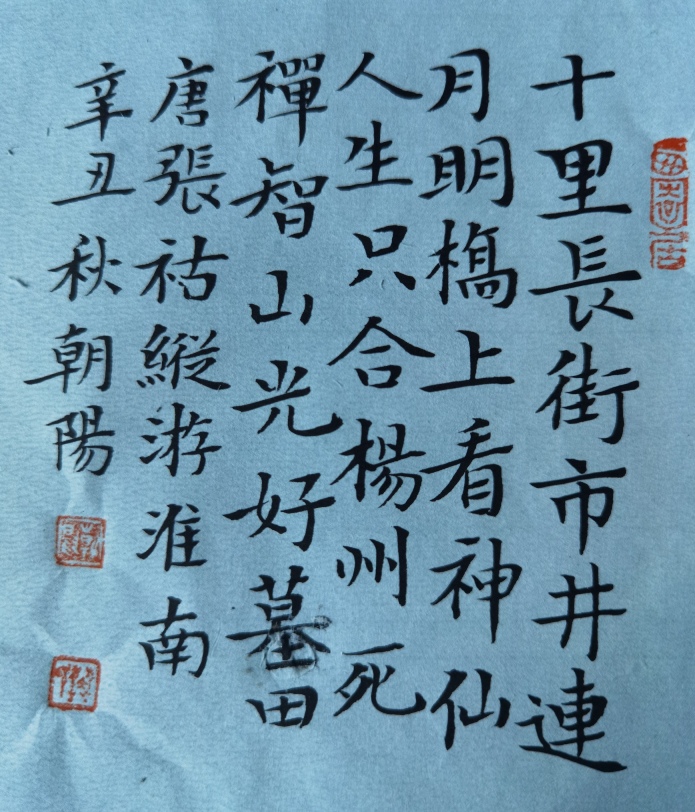 十里長街市井連
月明橋上看神仙
人生只合楊州死
禪智山光好墓田
唐張祜縱游淮南
辛丑秋朝陽